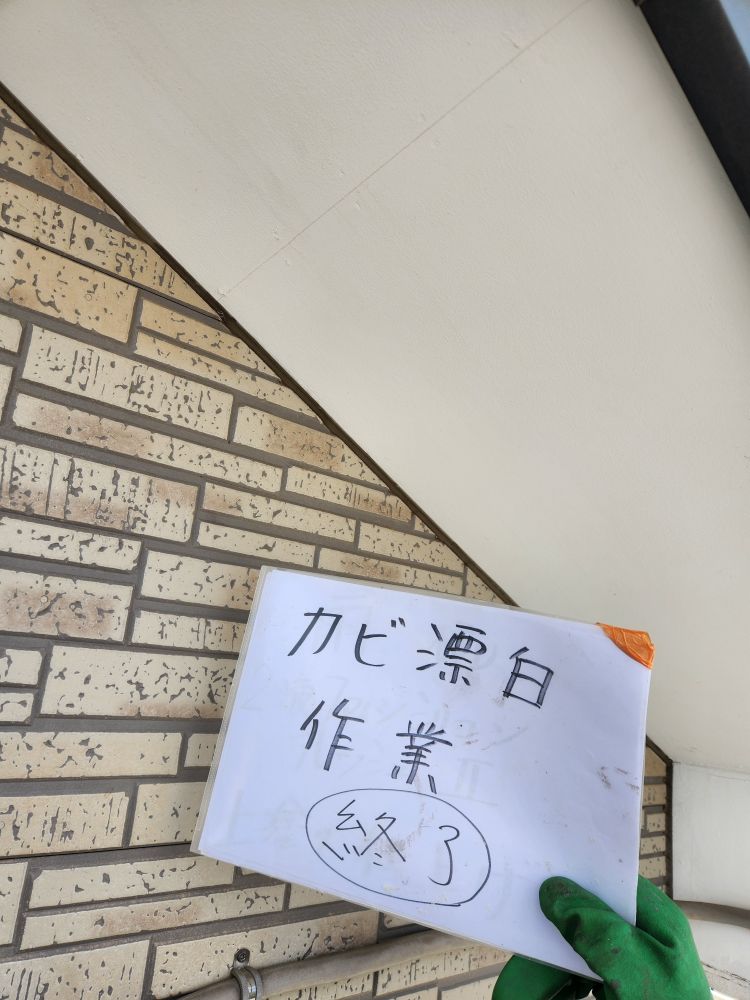 カビ漂白
作業
終了